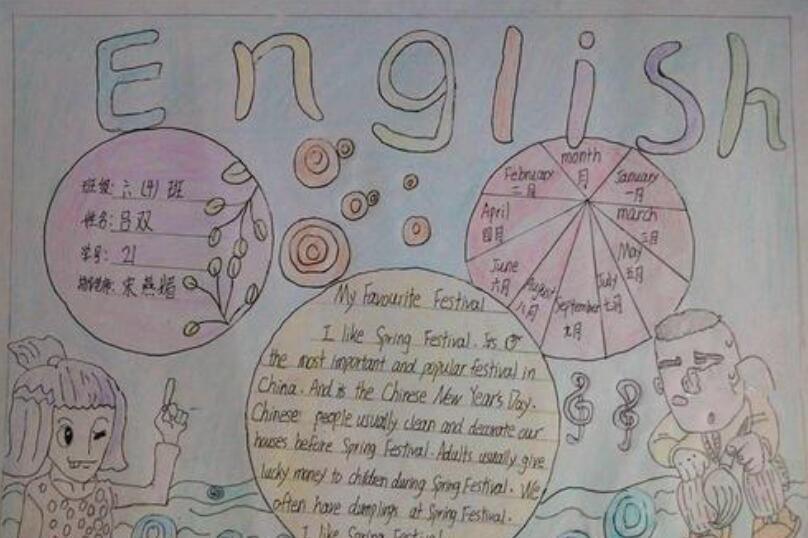 English
班级: 六 (4) 班
姓名: 吕双
学号: 21
指导老师: 宋燕娟
month
月
February
二月
January
一月
April
四月
march
三月
May
五月
June
六月
August
八月
September
九月
July
七月
My Favourite Festival
I like Spring Festival. Its
the most important and popular festival in
China. And is the Chinese New Year's Day.
Chinese people usually clean and decorate our
houses before Spring Festival. Adults usually give
lucky money to children during Spring Festival. We
often have dumplings at Spring Festival.
I like Spring Festival